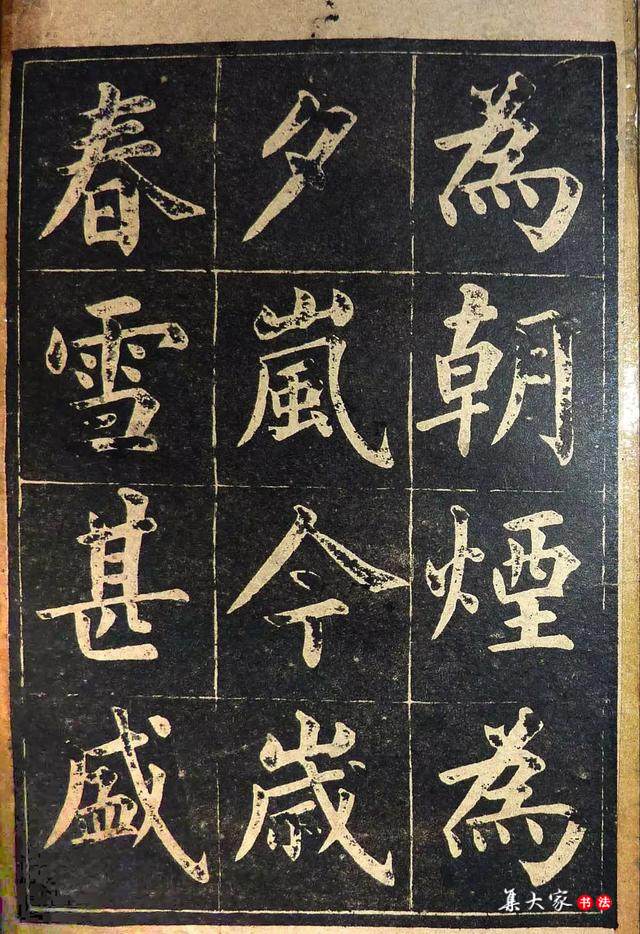 為朝煙為
夕嵐今歲
春雪甚盛
集大家书法